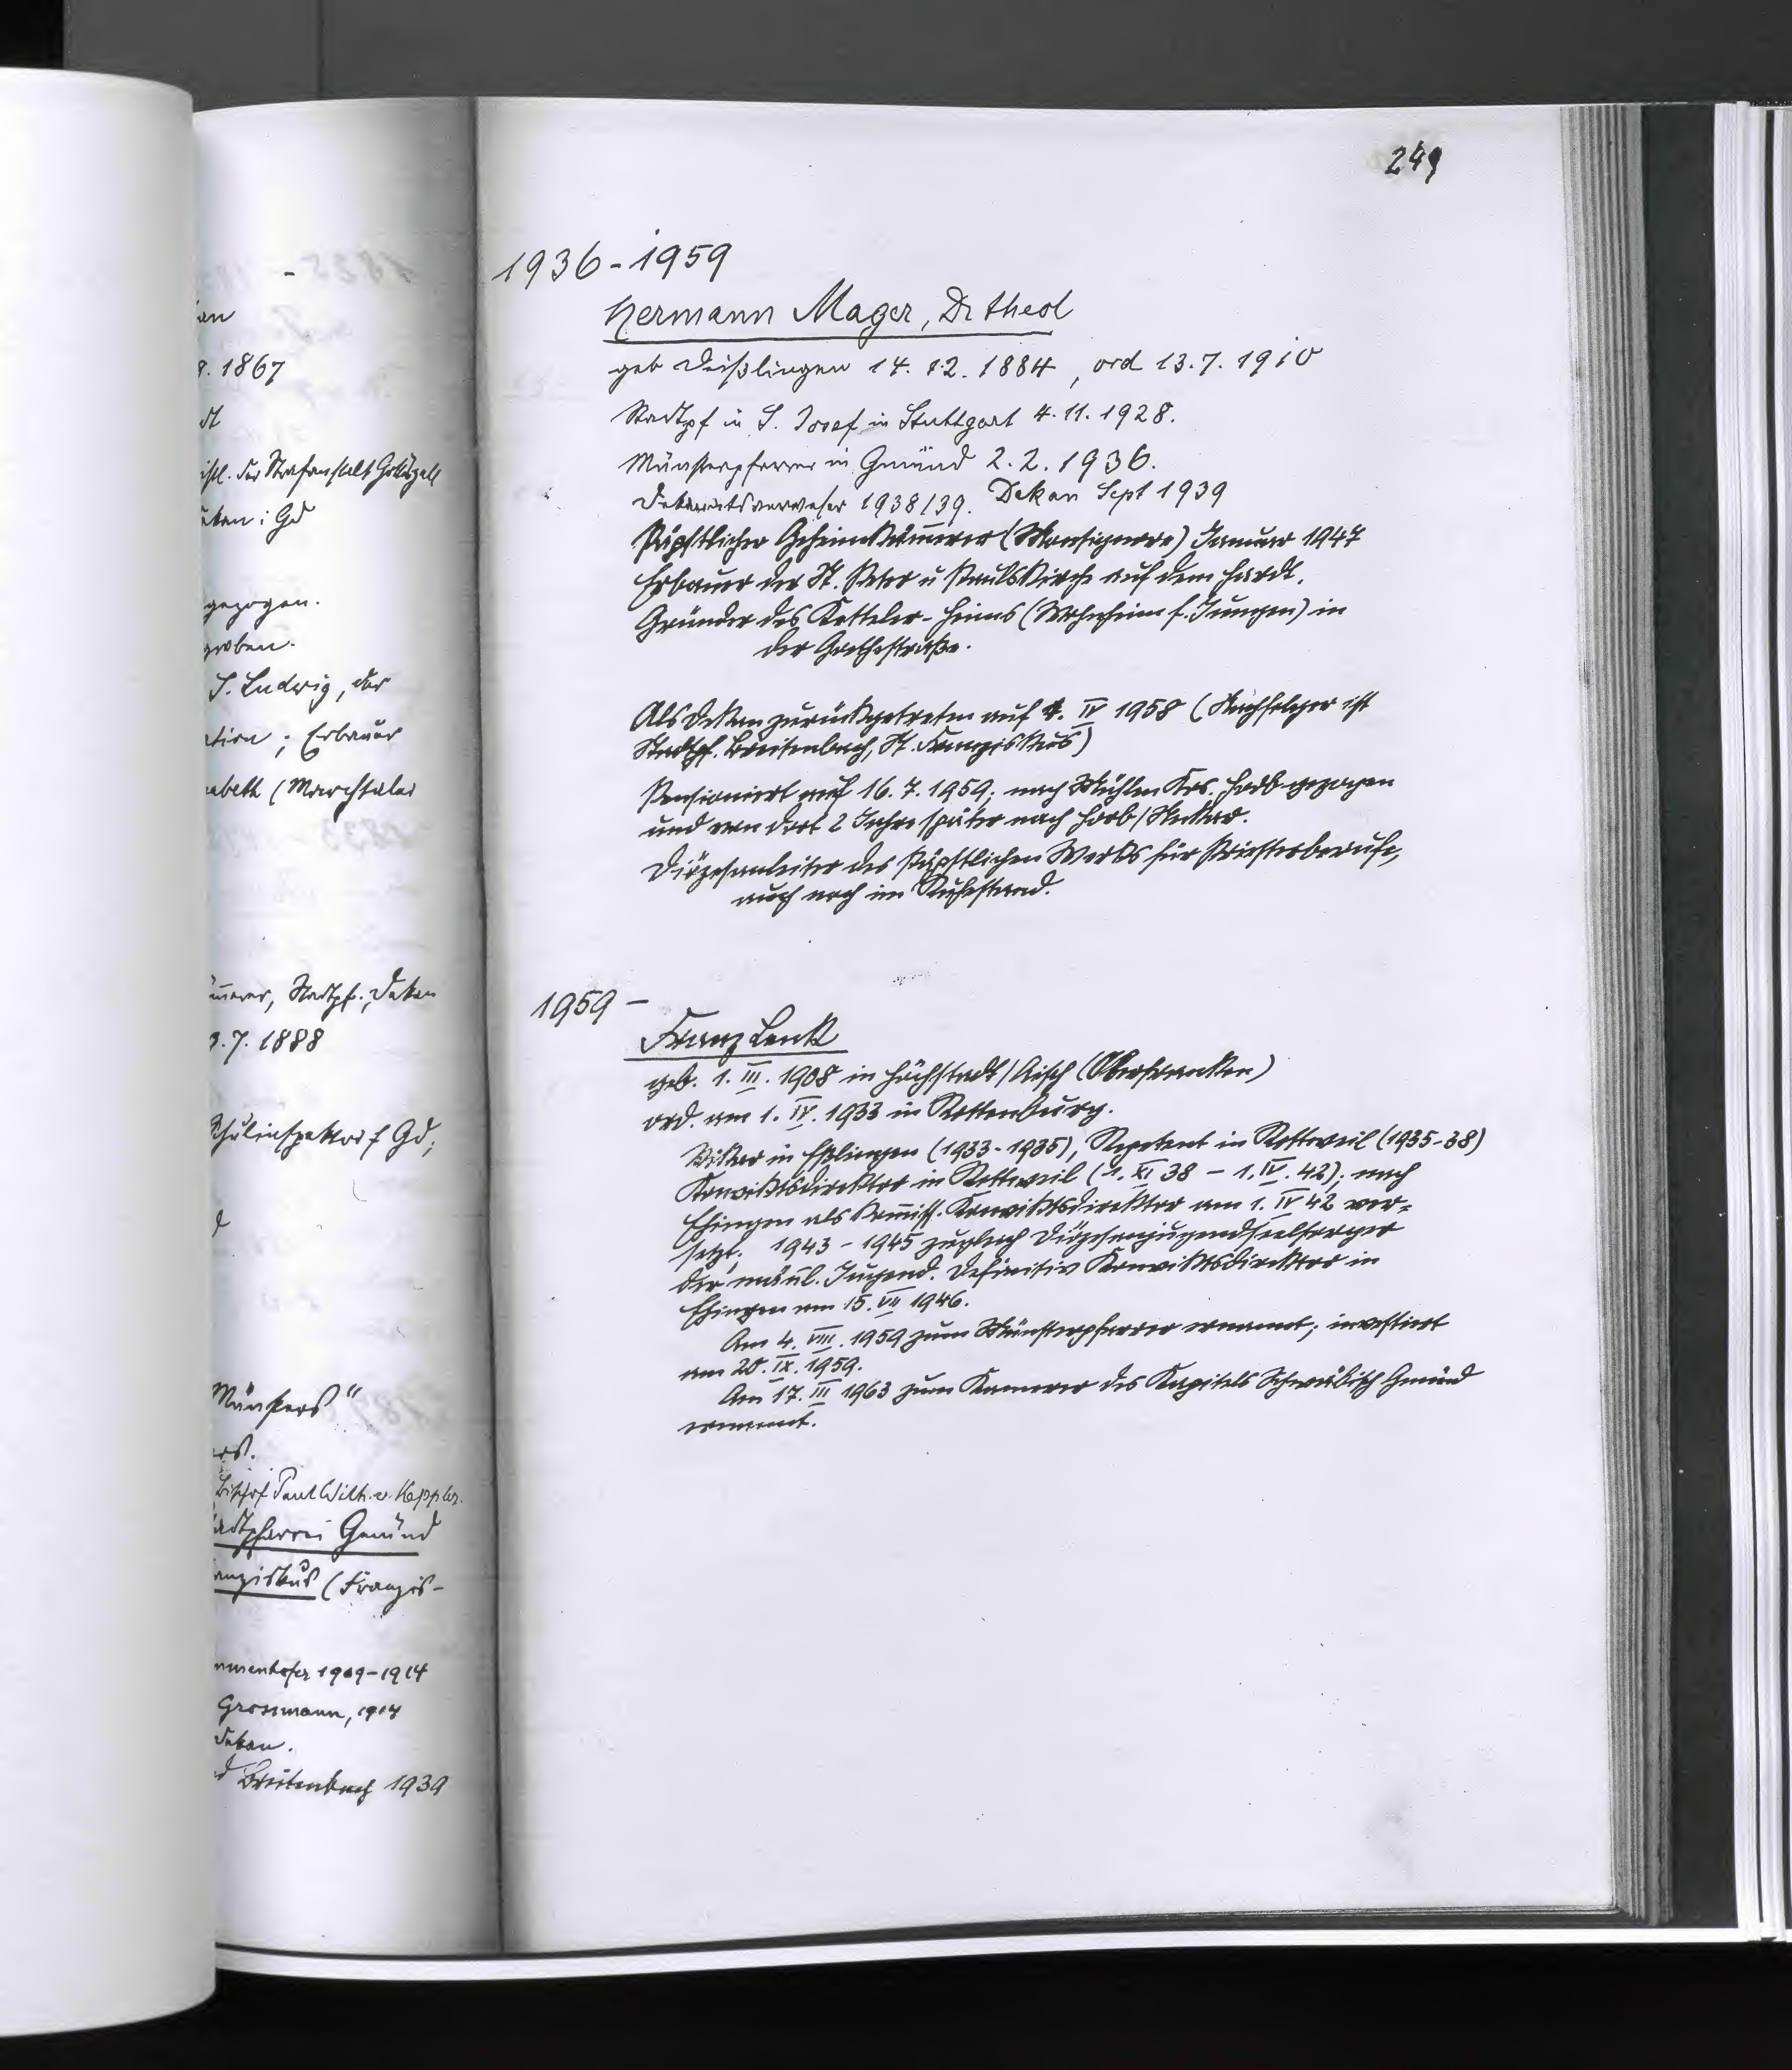 249
1936-1959
Hermann Mager, Dr theol
geb Deißlingen 14. 12. 1884, ord 13.7. 1910
Stadtpf in S. Josef in Stuttgart 4. 11. 1928.
Münsterpfarrer in Gmünd 2. 2. 1936.
Dekanatsverweser 1938/39. Dekan Sept 1939
Päpstlicher Geheimkämmerer (Monsignore) Januar 1947
Erbauer der St. Peter u Paulskirche auf dem Hardt.
Gründer des Ketteler-Heims (Wohnheim f. Jungen) in
der Goethestraße.
Als Dekan zurückgetreten auf 1. IV 1958 (Nachfolger ist
Stadtpf. Breitenbach, St. Franziskus)
Pensioniert auf 16. 7. 1959; nach Mühlen Krs. Horb gezogen
und von dort 2 Jahre später nach Horb/Neckar.
Diözesanleiter des Päpstlichen Werks für Priesterberufe,
auch noch im Ruhestand.
1959 -
Franz Lenk
geb. 1. III. 1908 in Höchstadt/Aisch (Oberfranken)
ord. am 1. IV. 1933 in Rottenburg.
Vikar in Eßlingen (1933-1935), Repetent in Rottweil (1935-38)
Konviktsdirektor in Rottweil (1. XI 38 - 1. IV. 42); nach
Ehingen als Komiss. Konviktsdirektor am 1. IV 42 ver-
setzt. 1943 - 1945 zugleich Diözesanjugendseelsorger
der mänl. Jugend. Definitiv Konviktsdirektor in
Ehingen am 15. VII 1946.
Am 4. VIII. 1959 zum Münsterpfarrer ernannt; investiert
am 20. IX. 1959.
Am 17. III 1963 zum Kamerer des Kapitels Schwäbisch Gmünd
ernannt.
1867
der Strafanstalt Gotteszell
Gd
gezogen.
S. Ludwig, der
; Erbauer
(Marchtaler
Stadtpf., Dekan
7. 1888
f Gd;
Münsters"
Bischof Paul Wilh. v. Keppler.
Gmünd
(Franzis-
1909-1914
Grossmann, 1914
Dekan.
Breitenbach 1939